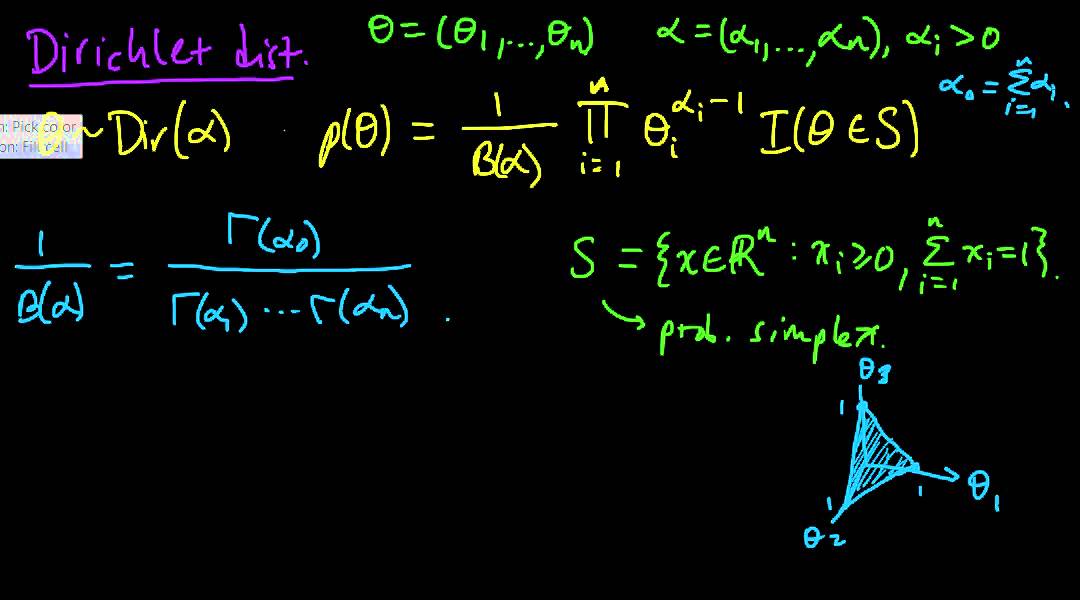 Dirichlet dist.
θ = (θ₁,...,θₙ)   α = (α₁,...,αₙ), αᵢ > 0
α₀ = ∑ᵢ₌₁ⁿ αᵢ.
n: Pick co or
on: Fill cell
θ ~ Dir(α)   p(θ) = 1/B(α) ∏ᵢ₌₁ⁿ θᵢ^(αᵢ-1) I(θ ∈ S)
1/B(α) = Γ(α₀)/Γ(α₁)⋯Γ(αₙ) .
S = {x ∈ ℝⁿ : xᵢ ≥ 0, ∑ᵢ₌₁ⁿ xᵢ = 1}.
→ prob. simplex.
θ₃
1
1
θ₁
1
θ₂